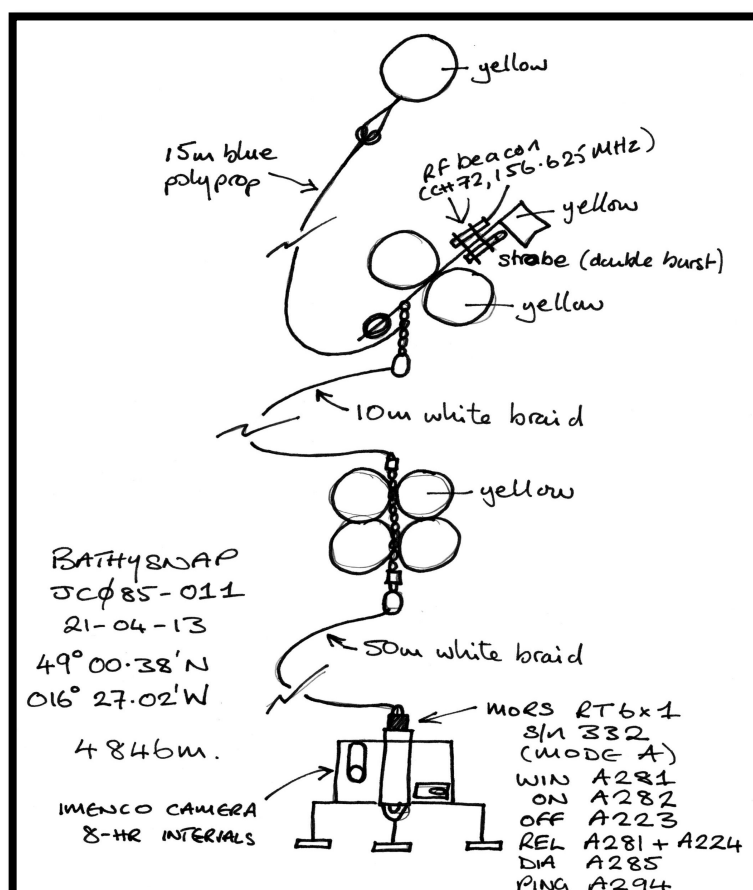 yellow
15m blue
polyprop
RF beacon
(CH72, 156.625 MHz)
yellow
strobe (double burst)
yellow
10m white braid
yellow
BATHYSNAP
JCØ85-011
21-04-13
49° 00.38'N
016° 27.02'W
4846m.
50m white braid
MORS RT6x1
S/N 332
(MODE A)
WIN A281
ON A282
OFF A223
REL A281 + A224
DIA A285
PING A294
IMENCO CAMERA
8-HR INTERVALS